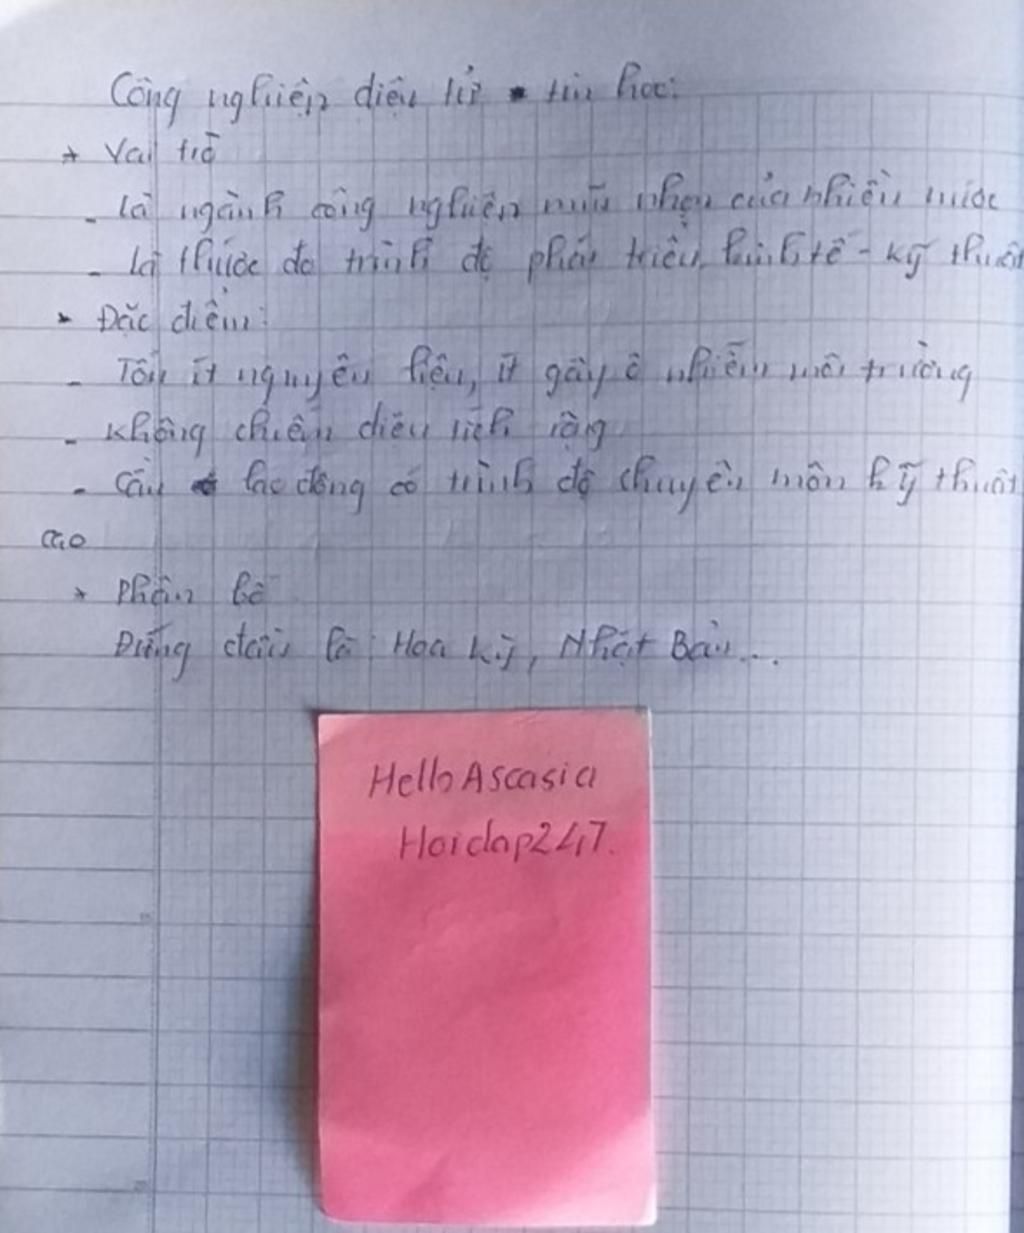 Công nghiệp điện tử - tin học:
* Vai trò
- là ngành công nghiệp mũi nhọn của nhiều nước
- là thước đo trình độ phát triển kinh tế - kỹ thuật
* Đặc điểm:
- Tốn ít nguyên liệu, ít gây ô nhiễm môi trường
- không chiếm diện tích rộng
- Cần lao động có trình độ chuyên môn kỹ thuật
cao
* Phân bố
Đứng đầu là: Hoa Kỳ, Nhật Bản...
Hello Ascasia
Hoidap247.